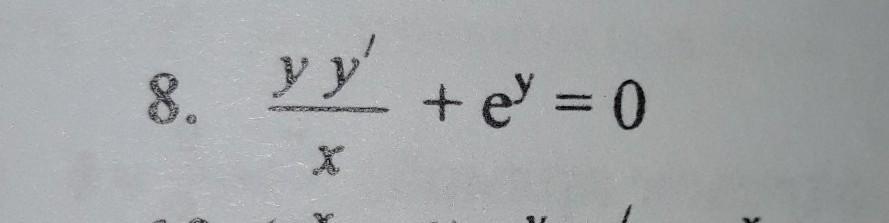 8. \frac{y y'}{x} + e^y = 0